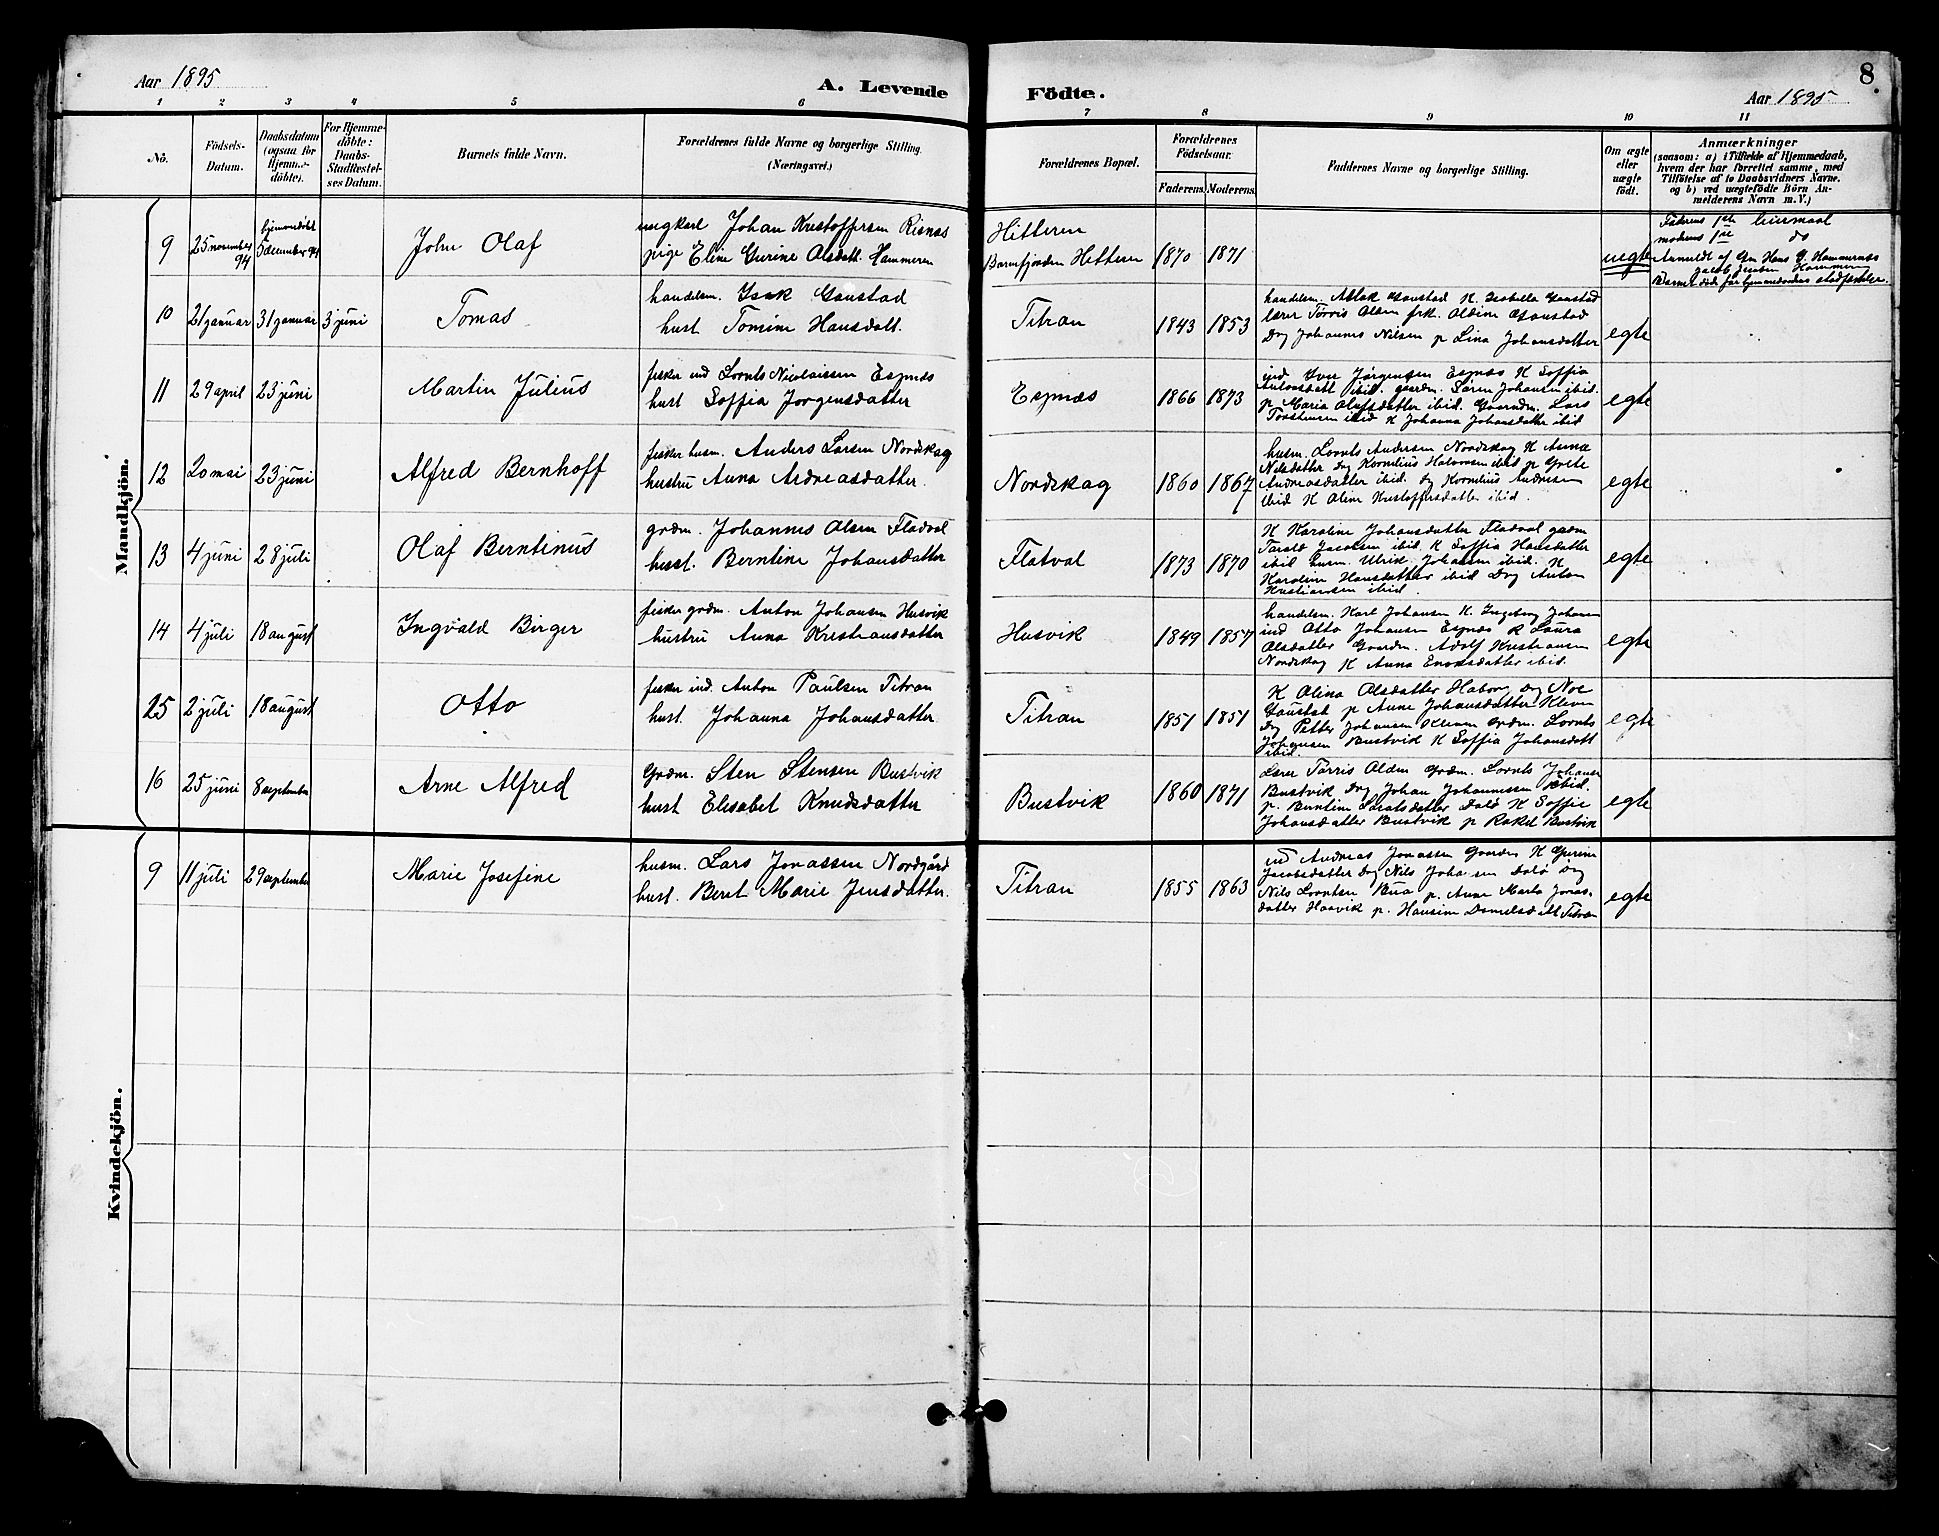 Aar 1895
A. Levende Födte.
8
Aar 1895
1 2 3 4 5 6 7 8 9 10 11
No.
Födsels-
Datum.
Daabsdatum
(ogsaa for
Hjemme-
döbte).
For Hjemme-
döbte:
Daabs-
Stadfæstel-
ses Datum.
Barnets fulde Navn.
Forældrenes fulde Navne og borgerlige Stilling.
(Næringsvei.)
Forældrenes Bopæl.
Forældrenes
Födselsaar.
Faderens. Moderens.
Faddernes Navne og borgerlige Stilling.
Om ægte
eller
uægte
födt.
Anmærkninger
(saasom: a) i Tilfælde af Hjemmedaab,
hvem der har forrettet samme, med
Tilföielse af to Daabsvidners Navne.
og b) ved uægtefödte Börn An-
melderens Navn m. V.)
Mandkjön.
9
25 november
94
hjemmedøbt
5 december 94
John Olaf
ungkarl Johan Kristoffersen Risnæs
pige Eline Gurine Olsdatt. Hammeren
Hitteren
Barmfjorden Hitteren
1870 1871
uegte
Faderens 1ste leiermaal
moderens 1ste do
Anmeldt af Gm Hans G. Hammernæs
Jacob Jensen Hammern
Barnet døde før hjemmedaabens stadfæstelse.
10 21 januar 31 januar 3 juni
Tomas
handelsm. Isak Gaustad
hust. Tomine Hansdatt.
Titran
1843 1853
handelsm. Aslak Gaustad K. Isabella Gaustad
lærer Torris Alden frk. Aldine Gaustad
Drg Johannes Nilsen p Lina Johansdatter
egte
11 29 april 23 juni
Martin Julius
fisker ind Lornts Nicolaissen Espnæs
hust Soffia Jørgensdatter
Espnæs
1866 1873
ind Iver Jørgensen Espnæs K Soffia
Antonsdatt ibid. gaardm. Søren Johansen ibid.
p Maria Olufsdatter ibid. Gaardm. Lars
Torstensen ibid K Johanna Johansdatter ibid
egte
12 20 mai 23 juni
Alfred Bernhoff
fisker husm. Anders Larsen Nordskag
hustru Anna Andreasdatter.
Nordskag
1860 1867
husm. Lornts Andersen Nordskag K Anna
Nilsdatter Drg Kornelius Halvorsen ibid p Grete
Andreasdatter ibid. Drg Kornelius Andresen
ibid K Aline Kristoffersdatter ibid.
egte
13 4 juni 28 juli
Olaf Berntinus
grdm. Johannes Olsen Fladval
hust. Berntine Johansdatter
Flatval
1873 1870
K Karoline Johansdatter Fladval gadm
Tarald Jacobsen ibid. K Soffia Hansdatter
ibid husm. Ulrik Johansen ibid. K
Karoline Hansdatter ibid Drg Anton
Kristiansen ibid.
egte
14 4 juli 18 august
Ingvald Birger
fisker grdm. Anton Johansen Husvik
hustru Anna Kristiansdatter
Husvik
1849 1857
handelsm. Karl Johansen K. Ingeborg Johansen
ind Otto Johansen Espnæs K Laura
Olsdatter Gaardm. Adolf Kristiansen
Nordskag K Anna Enoksdatter ibid.
egte
25 2 juli 18 august
Otto
fisker ind. Anton Paulsen Titran
hust. Johanna Johansdatter
Titran
1851 1851
K Alina Olsdatter Drg Noe
Gaustad p Anne Johansdatter Kleven
Drg Petter Johansen Kleven Grdm. Lornts
Johansen Bustvik K Soffia Johansdatt
ibid.
egte
16 25 juni 8 september
Arne Alfred
Grdm. Sten Stensen Bustvik
hust Elisabet Knudsdatter
Bustvik
1860 1871
Lærer Torris Alden Grdm. Lornts Johansen
Bustvik Drg Johan Johannessen ibid.
p. Berntine Dalø K Soffie
Johansdatter Bustvik p Rakel Bustvik
egte
Kvindekjön.
9 11 juli 29 september
Marie Josefine
husm. Lars Jonassen Nordgård
hust. Beret Marie Jensdatter.
Titran
1855 1863
ind Andreas Jonassen K Gurine
Jacobsdatter Drg Nils Johansen Dalø Drg
Nils Lorntsen Bua p. Anne Marta Jonas-
datter Haavik p. Hansine Danielsdatt Titran
egte